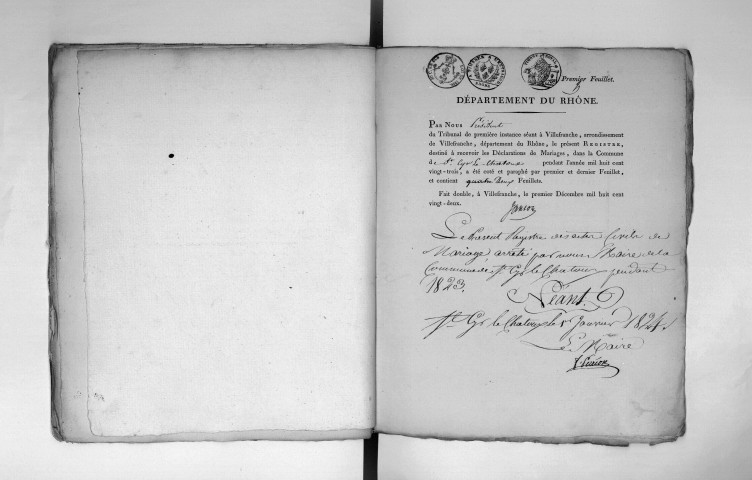 Premier Feuillet.
DÉPARTEMENT DU RHÔNE.
PAR NOUS Président
du Tribunal de première instance séant à Villefranche, arrondissement
de Villefranche, département du Rhône, le présent REGISTRE,
destiné à recevoir les Déclarations de Mariages, dans la Commune
de St. Cyr le Chatoux pendant l'année mil huit cent
vingt-trois, a été coté et paraphé par premier et dernier Feuillet,
et contient quatre Feuillets.
Fait double, à Villefranche, le premier Décembre mil huit cent
vingt-deux.
Le Présent Registre des actes Civils de
Mariage arrêté par nous Maire de la
Commune de St. Cyr le Chatoux pendant
1823.
Néant
St. Cyr le Chatoux le 1 Janvier 1824.
Le Maire